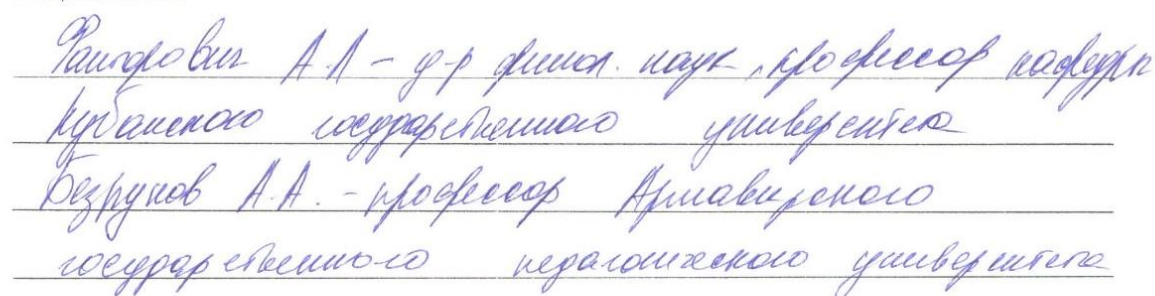 Факторович А.Л – д-р филол. наук, профессор кафедры
Кубанского государственного университета
Безруков А.А. – профессор Армавирского
государственного педагогического университета